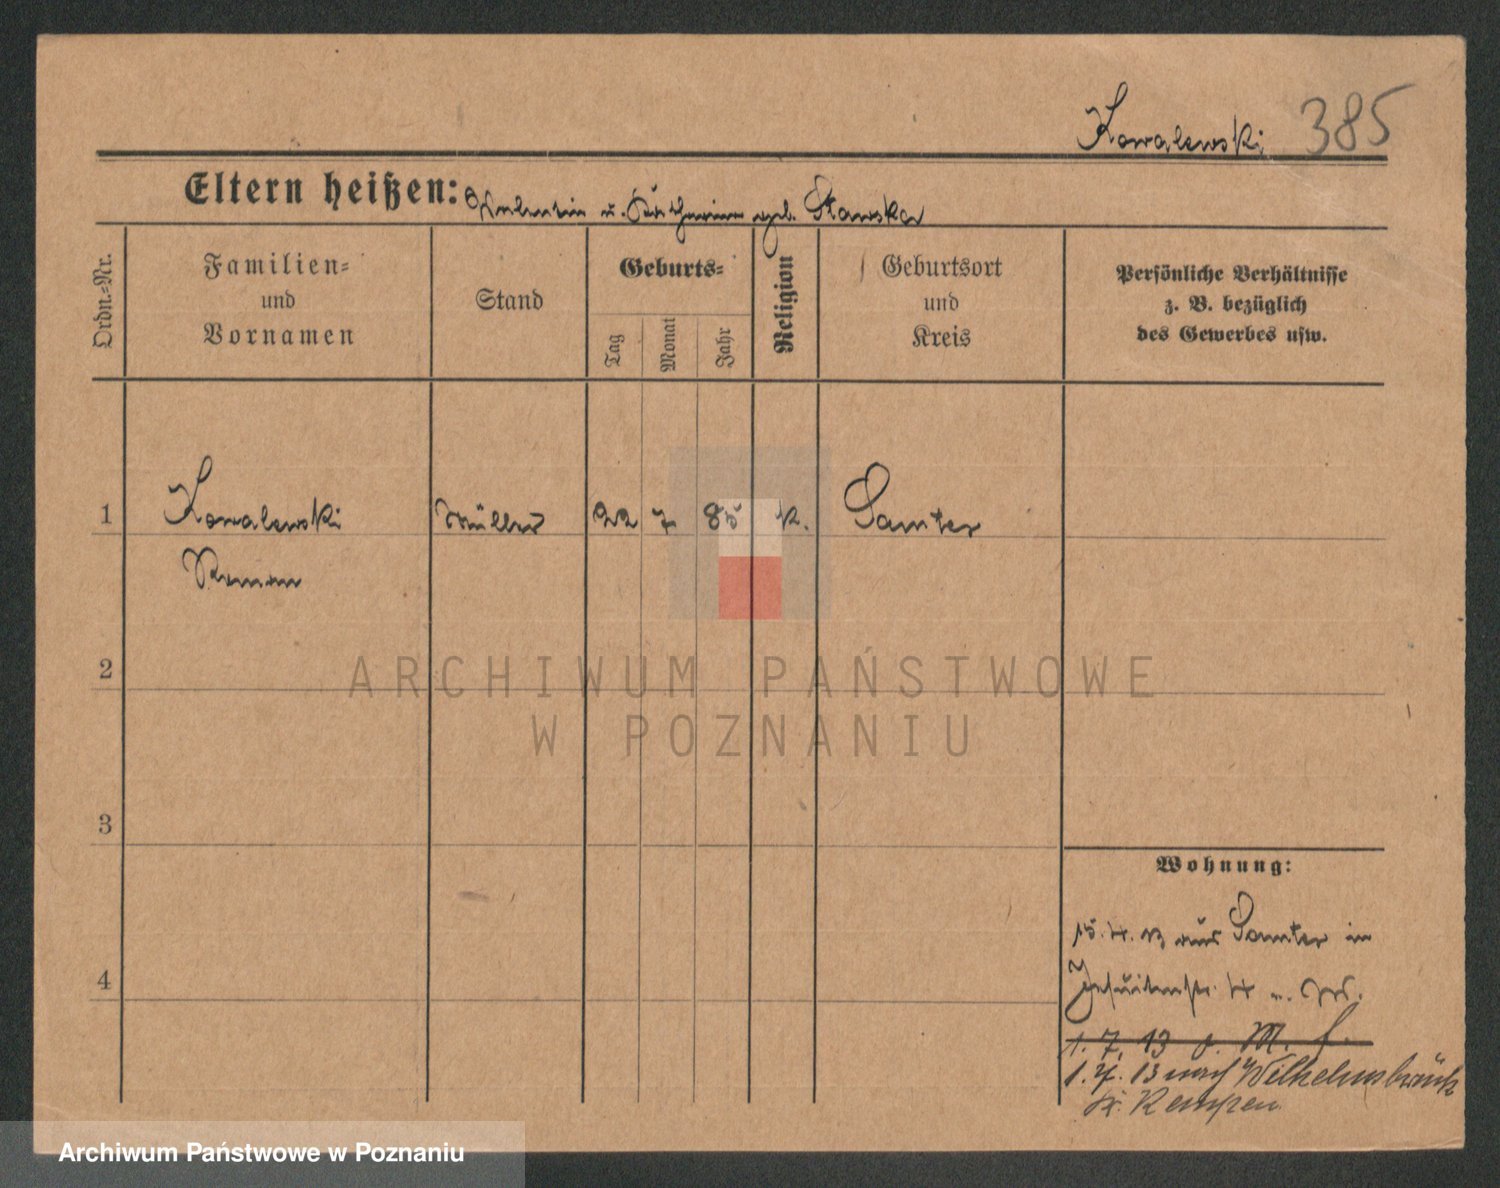 Kowalewski 385
Eltern heißen: Valentin u. Katharina geb. Stawska
Ordn.-Nr.
Familien-
und
Vornamen
Stand
Geburts-
Tag
Monat
Jahr
Religion
Geburtsort
und
Kreis
Persönliche Verhältnisse
z. B. bezüglich
des Gewerbes usw.
1 Kowalewski Müller 22 7 85 k. Samter
Roman
2
3
4
Wohnung:
15. 4. 13 aus Samter in
Jesuitenstr. 4 u. W.
1. 7. 13 o. M. f.
1. 7. 13 nach Wilhelmsbrück
Kr. Kempen
ARCHIWUM PAŃSTWOWE
W POZNANIU
Archiwum Państwowe w Poznaniu